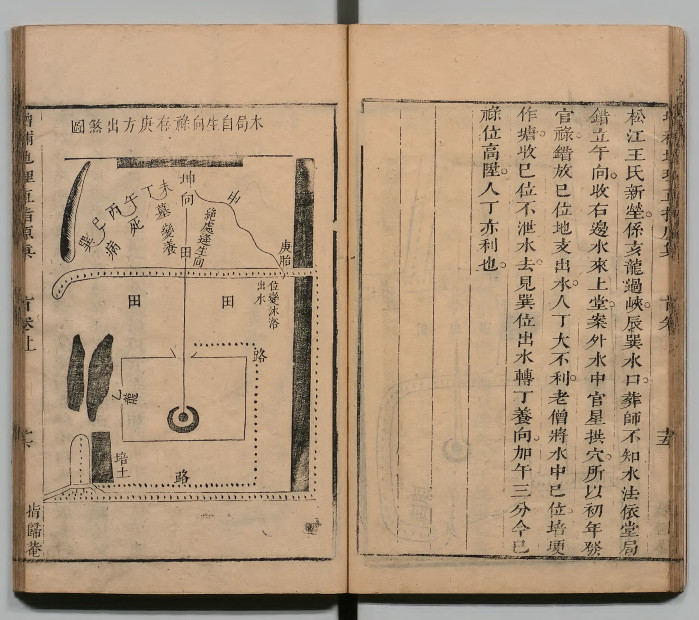 松江王氏新塋係亥龍過峽辰巽水口葬師不知水法依堂局
錯立午向收右邊水來上堂案外水中官星拱穴所以初年發
官祿錯放巳位地支出水人丁大不利老僧將水中巳位培埂
作塘收巳位不泄水去見巽位出水轉丁養向加午三分今已
祿位高陞人丁亦利也
木局自生向祿存庚方出煞圖
坤向
申
庚胎
未
丁
午
丙
巳
巽
墓變養
死
病
絕處逢生向
位變沐浴
出水
田
田
田
路
乙龍
培土
路
增補地理直指原真
首卷上
指歸菴
首卷